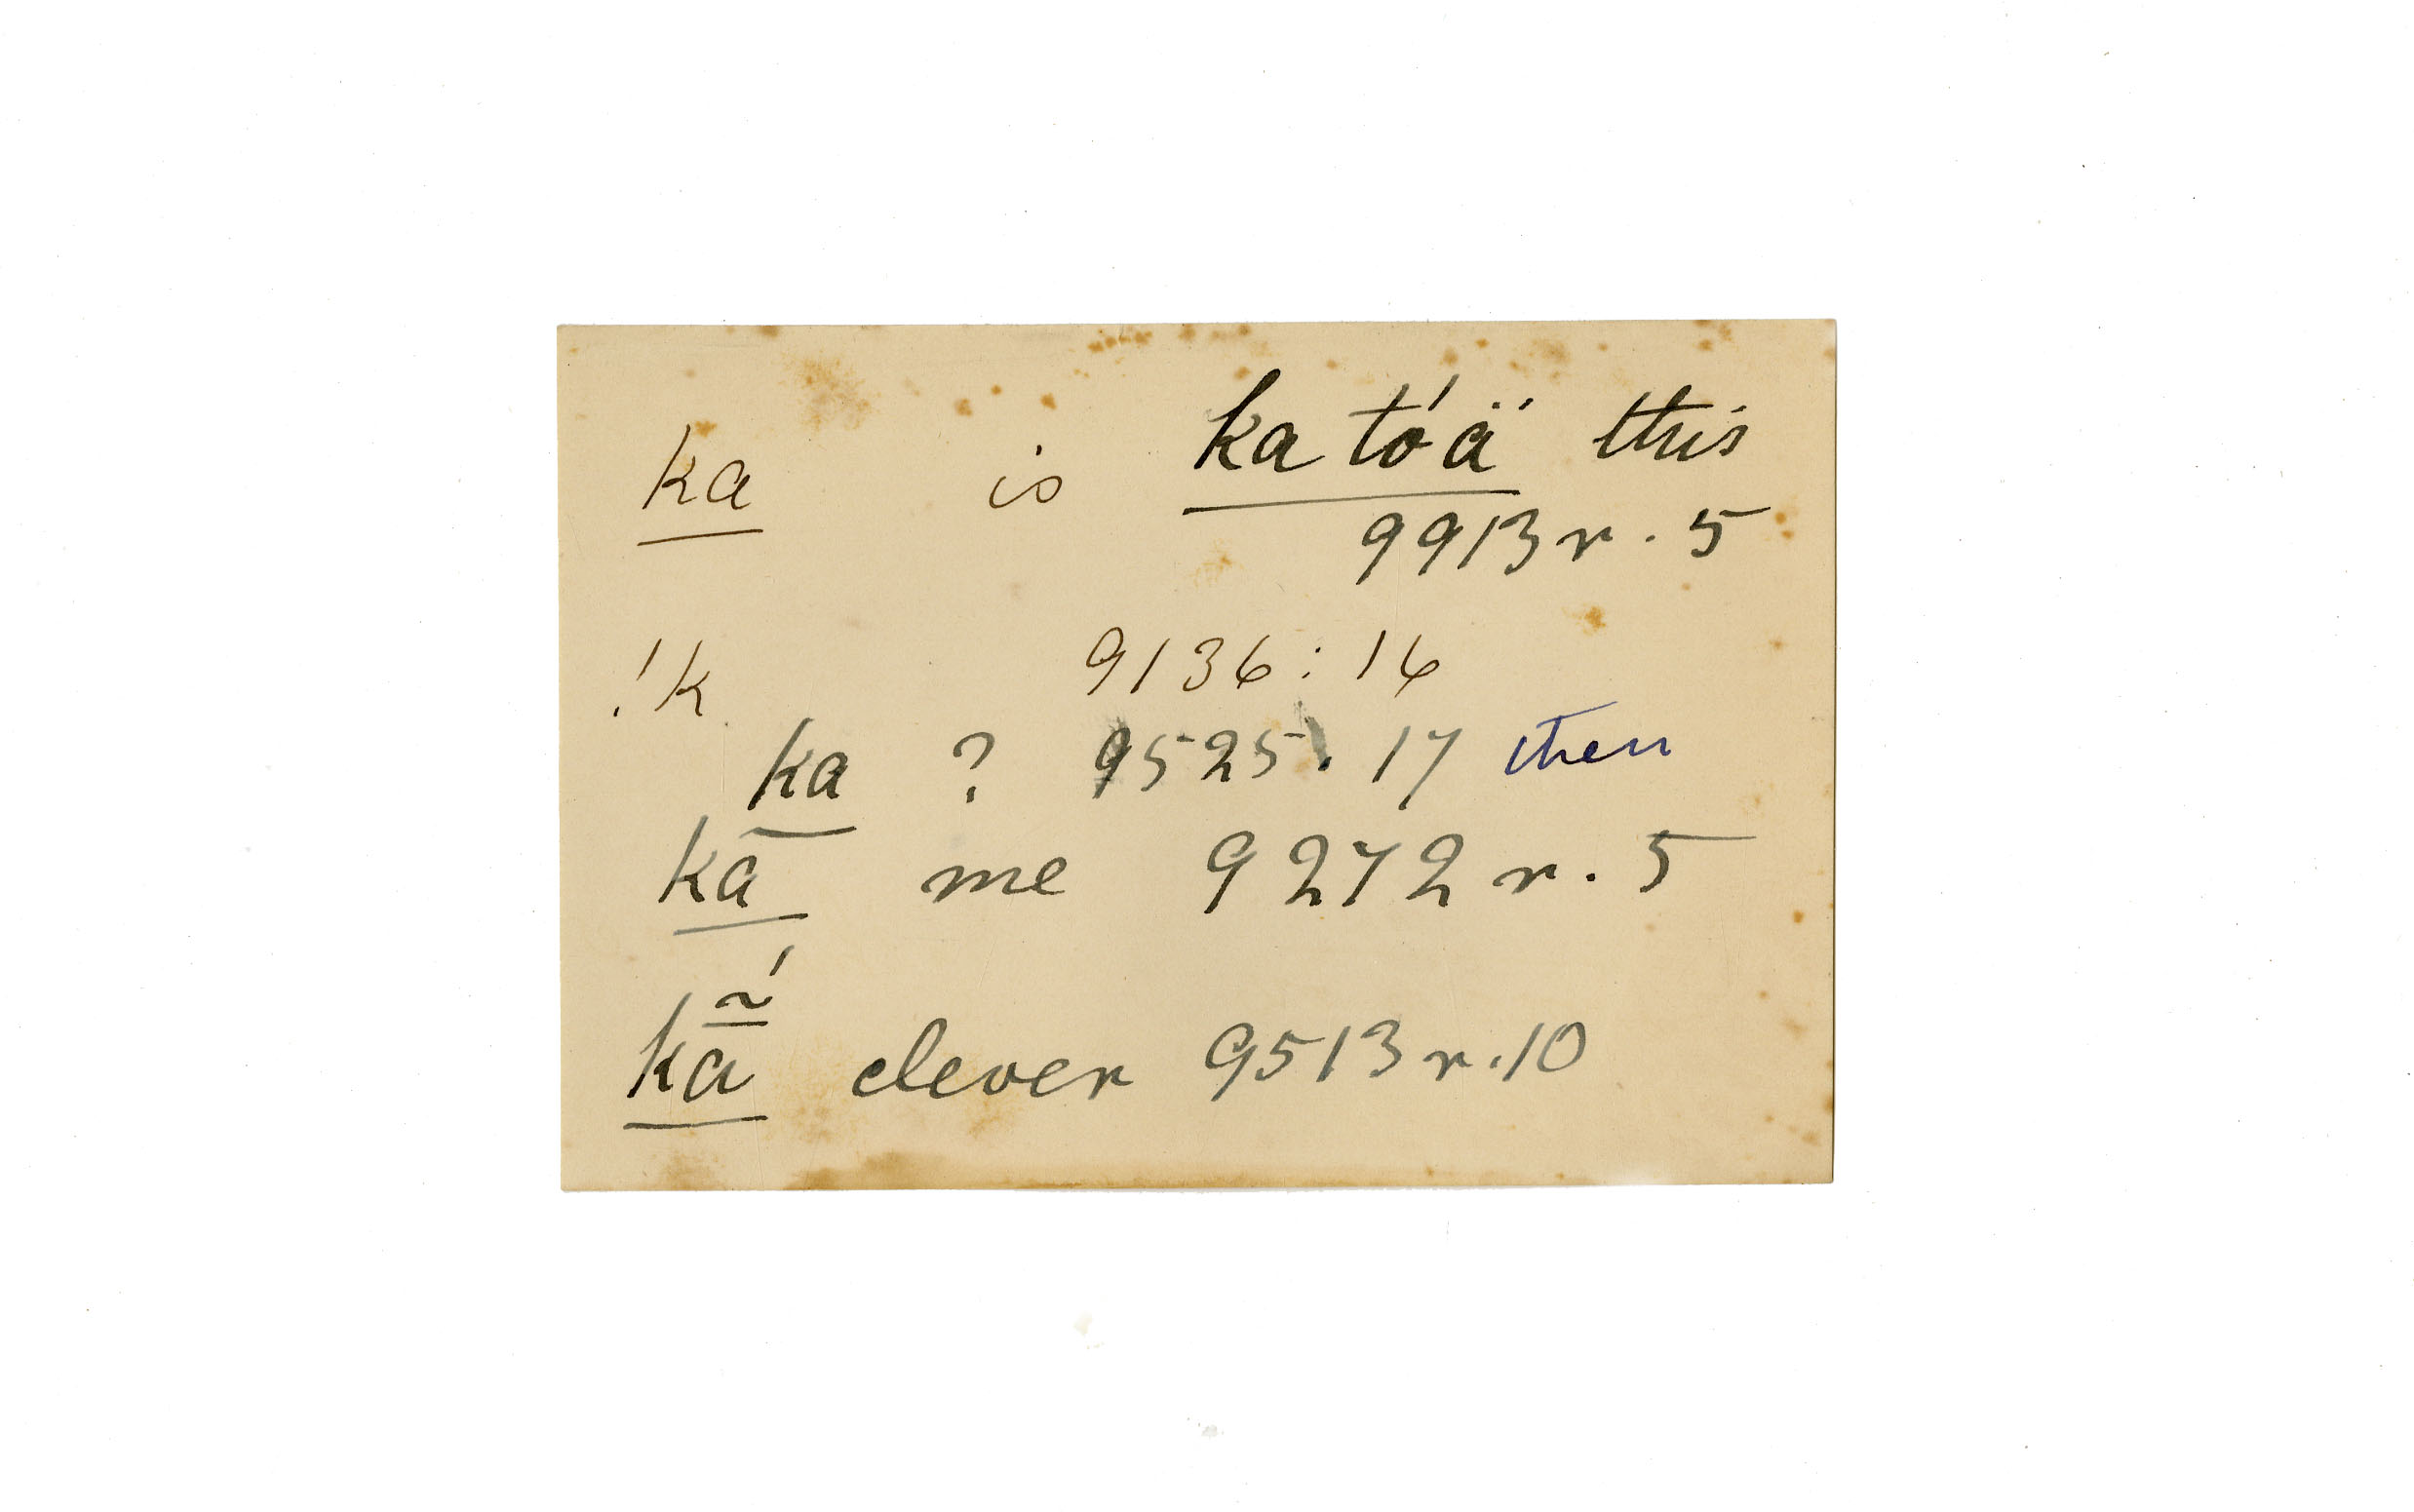 ka is ka tó'ä this
9913 r. 5
!k 9136: 16
ka ? 9525. 17 then
kā me 9272 r. 5
kā̰́ clever 9513 r. 10